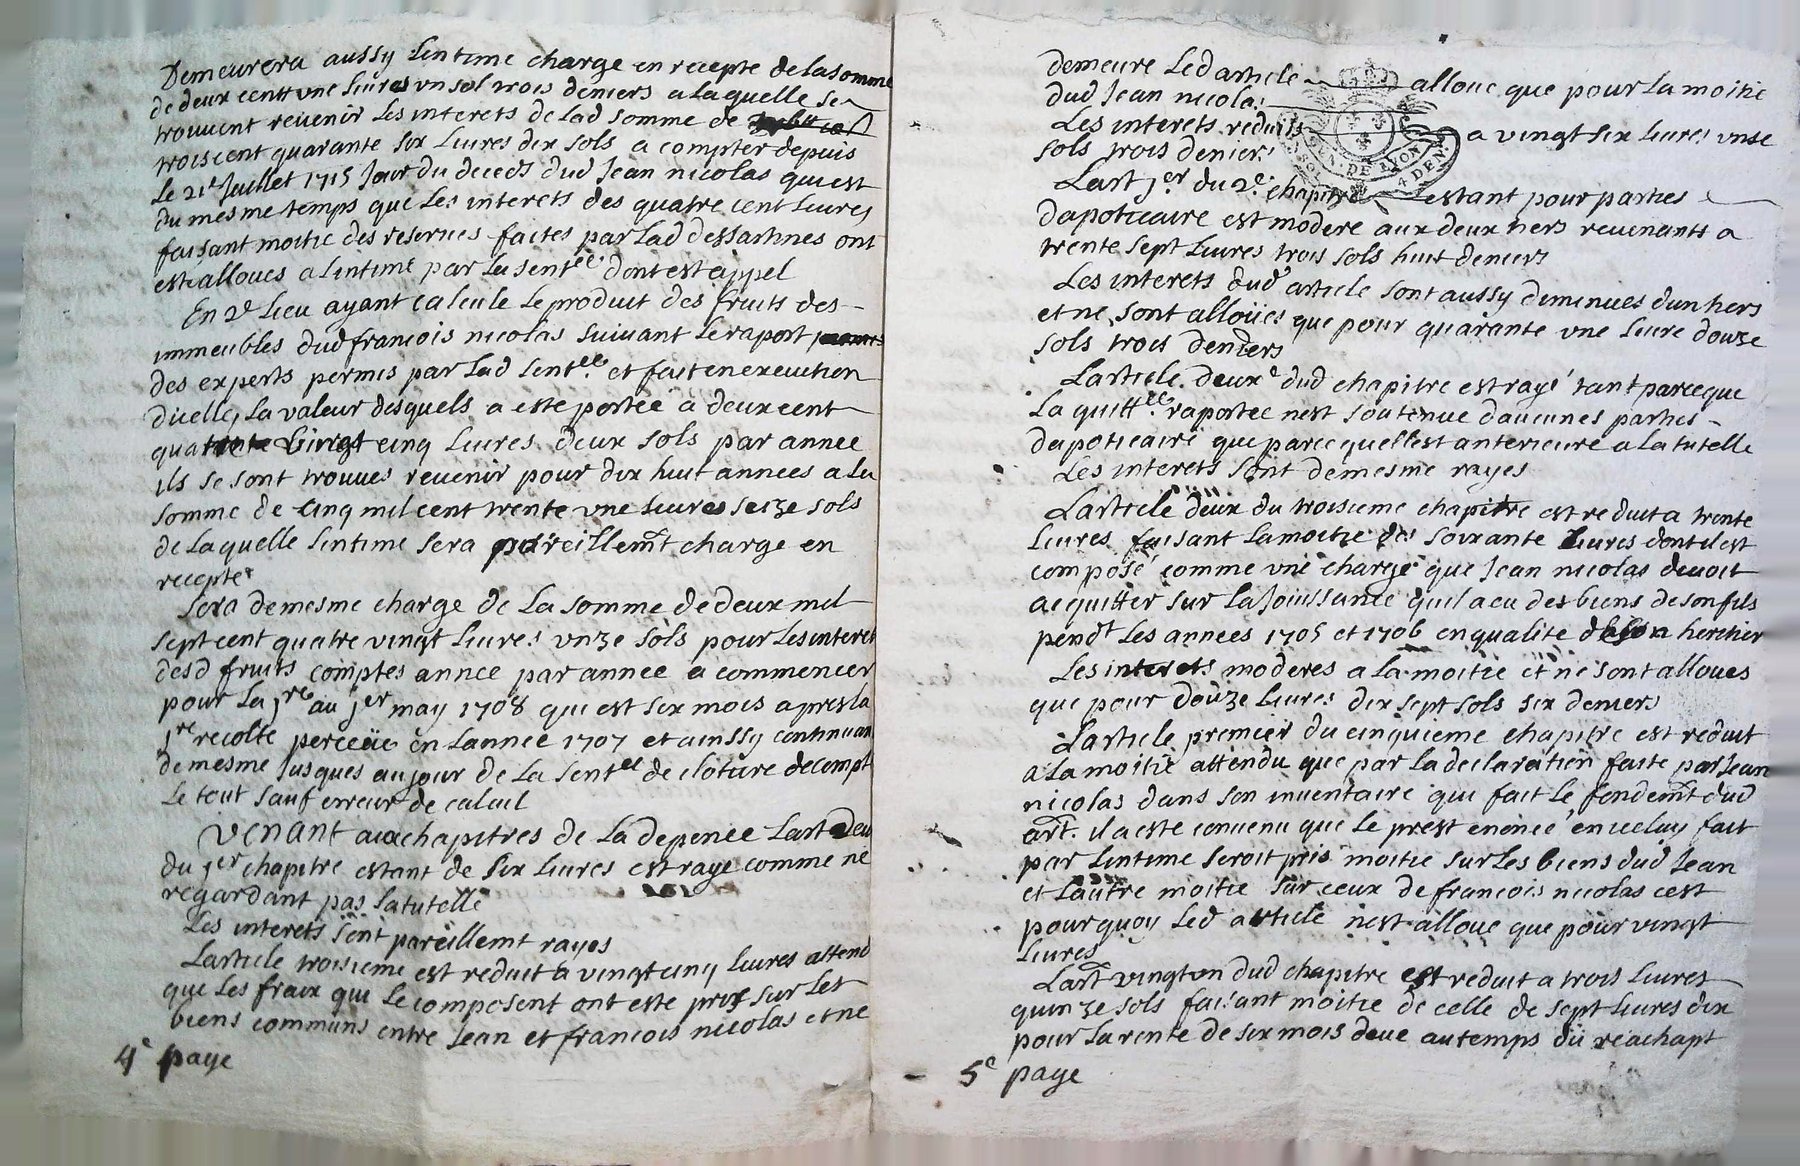 Demeurera aussy Lintime charge en recepte de la somme
de deux cent vne liures vn sol trois deniers a laquelle se
trouuent reuenir Les interets de lad somme de
trois cent quarante six liures dix sols a compter depuis
Le 21e Juillet 1715 Jour du deceds dud Jean nicolas qui est
du mesme temps que Les interets des quatre cent liures
faisant moitie des reserues faites par lad dessartines ont
este alloues a Lintime par La sentce dont est appel
En 2d Lieu ayant calcule Le produit des fruits des
immeubles dud francois nicolas suiuant Le raport
des experts permis par lad sentce et fait en execution
dicelle, La valeur desquels a este portee a deux cent
quatre vingt cinq liures deux sols par annee
ils se sont trouues reuenir pour dix huit annees a La
somme de Cinq mil cent trente vne liures seize sols
de Laquelle Lintime sera pareillemt charge en
recepte
Sera de mesme charge de La somme de deux mil
sept cent quatre vingt liures vnze sols pour Les interets
desd fruits comptes annee par annee a commencer
pour La 1re au 1er may 1708 qui est six mois apres la
1re recolte perceüe en Lannee 1707 et ainssy continuant
de mesme Jusques au jour de La sentce de cloture de compte
Le tout sauf erreur de calcul
Venant aux chapitres de La depence Lart deux
du 1er chapitre estant de six liures est raye comme ne
regardant pas La tutelle
Les interets sont pareillemt rayes
Larticle troisieme est reduit a vingt cinq liures attendu
que Les fraix qui Le composent ont este pris sur Les
biens communs entre Jean et francois nicolas et ne
4e page
demeure Led article alloue que pour La moitie
dud Jean nicolas
Les interets reduits a vingt six liures vnse
sols trois deniers
GEN. DE LYON
SOL 4 DEN.
Lart 1er du 2e chapitre estant pour parties
dapoticaire est modere aux deux tiers reuenants a
trente sept liures trois sols huit deniers
Les interets dud article sont aussy diminues dun tiers
et ne sont alloües que pour quarante vne liure douze
sols trois deniers
Larticle deuxe dud chapitre est rayé tant parce que
La quittce raportee nest soutenue dauccunes parties
dapoticaire que parce quelle est anterieure a La tutelle
Les interets sont de mesme rayes
Larticle deux du troisieme chapitre est reduit a trente
liures faisant La moitie des soixante liures dont il est
composé comme vne charge que Jean nicolas deuoit
acquitter sur La Joüissance quil a eu des biens de son fils
pendt Les annees 1705 et 1706 en qualite heritier
Les interets moderes a La moitie et ne sont alloues
que pour douze liures dix sept sols six deniers
Larticle premier du cinquieme chapitre est reduit
a La moitie attendu que par La declaration faite par Jean
nicolas dans son inuentaire qui fait Le fondemt dud
art. il a este conuenu que Le prest enonce en iceluy fait
par Lintime seroit pris moitie sur Les biens dud Jean
et Lautre moitie sur ceux de francois nicolas cest
pourquoy Led article nest alloue que pour vingt
liures
Lart vingt vn dud chapitre est reduit a trois liures
quinze sols faisant moitie de celle de sept liures dix
pour La rente de six mois deue au temps du reachapt
5e page